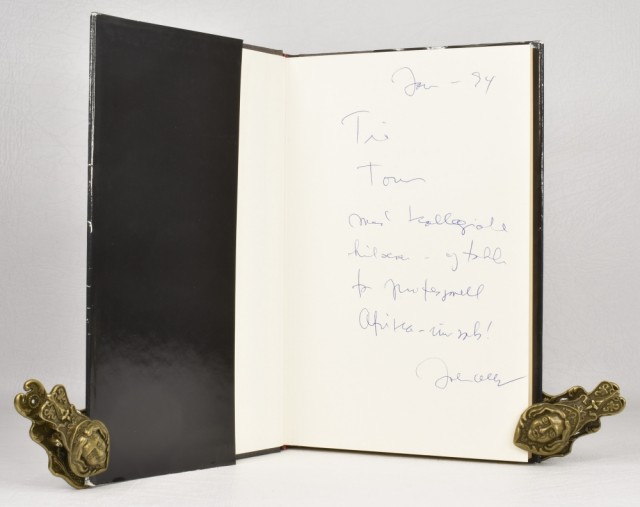 Jan - 94
Til
Tom
med kollegiale
hilsen - og takk
for profesjonell
Afrika-innsats!